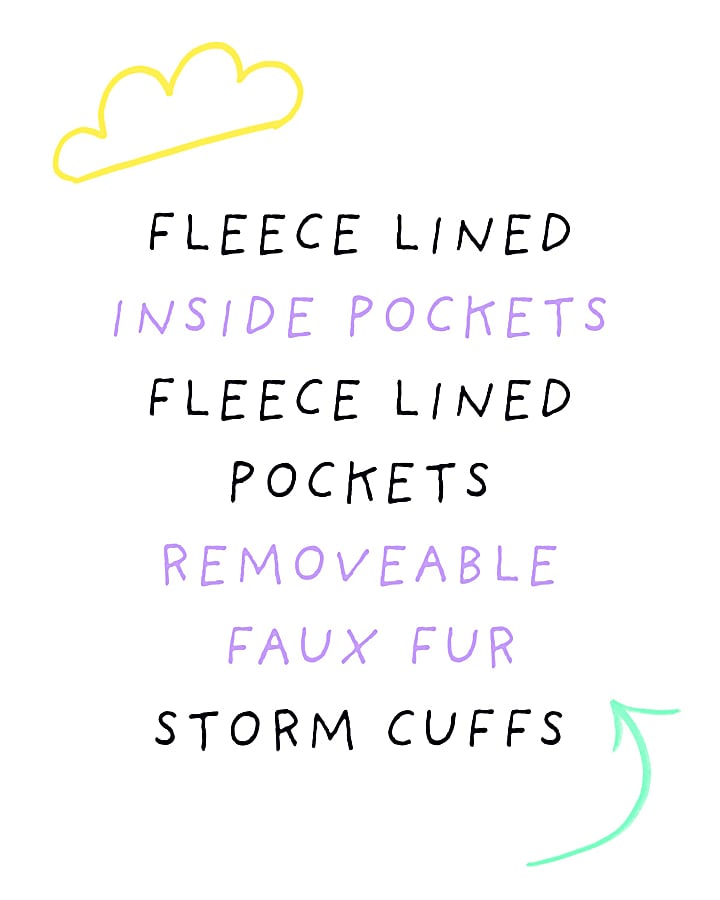 FLEECE LINED
INSIDE POCKETS
FLEECE LINED
POCKETS
REMOVEABLE
FAUX FUR
STORM CUFFS